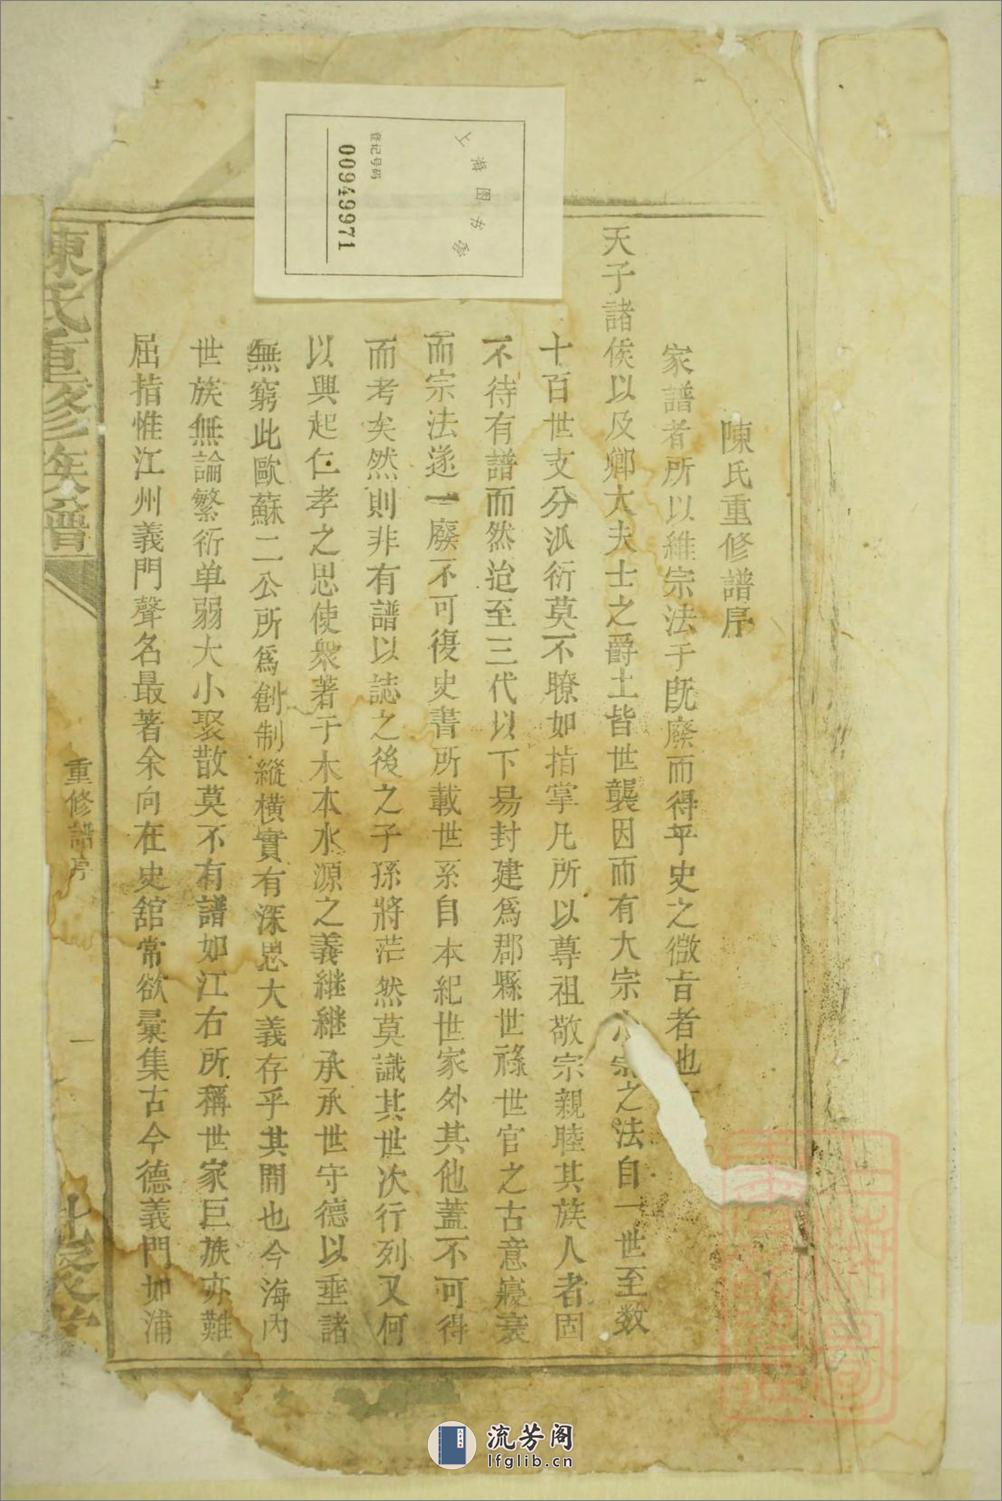 上海图书馆
登记号码
00949971
陳氏重修譜序
家譜者所以維宗法于既廢而得乎史之微旨者也
天子諸侯以及卿大夫士之爵土皆世襲因而有大宗小宗之法自一世至数
十百世支分派衍莫不瞭如指掌凡所以尊祖敬宗親睦其族人者固
不待有譜而然迨至三代以下易封建爲郡縣世祿世官之古意寖衰
而宗法遂一廢不可復史書所載世系自本紀世家外其他蓋不可得
而考矣然則非有譜以誌之後之子孫將茫然莫識其世次行列又何
以興起仁孝之思使衆著于木本水源之義継継承承世守德以垂諸
無窮此歐蘇二公所爲創制縱橫實有深思大義存乎其間也今海内
世族無論繁衍单弱大小聚散莫不有譜如江右所稱世家巨族亦難
屈指惟江州義門聲名最著余向在史舘常欲彙集古今德義門如浦
陳氏重修族譜
重修譜序
一
流芳阁
lfglib.cn